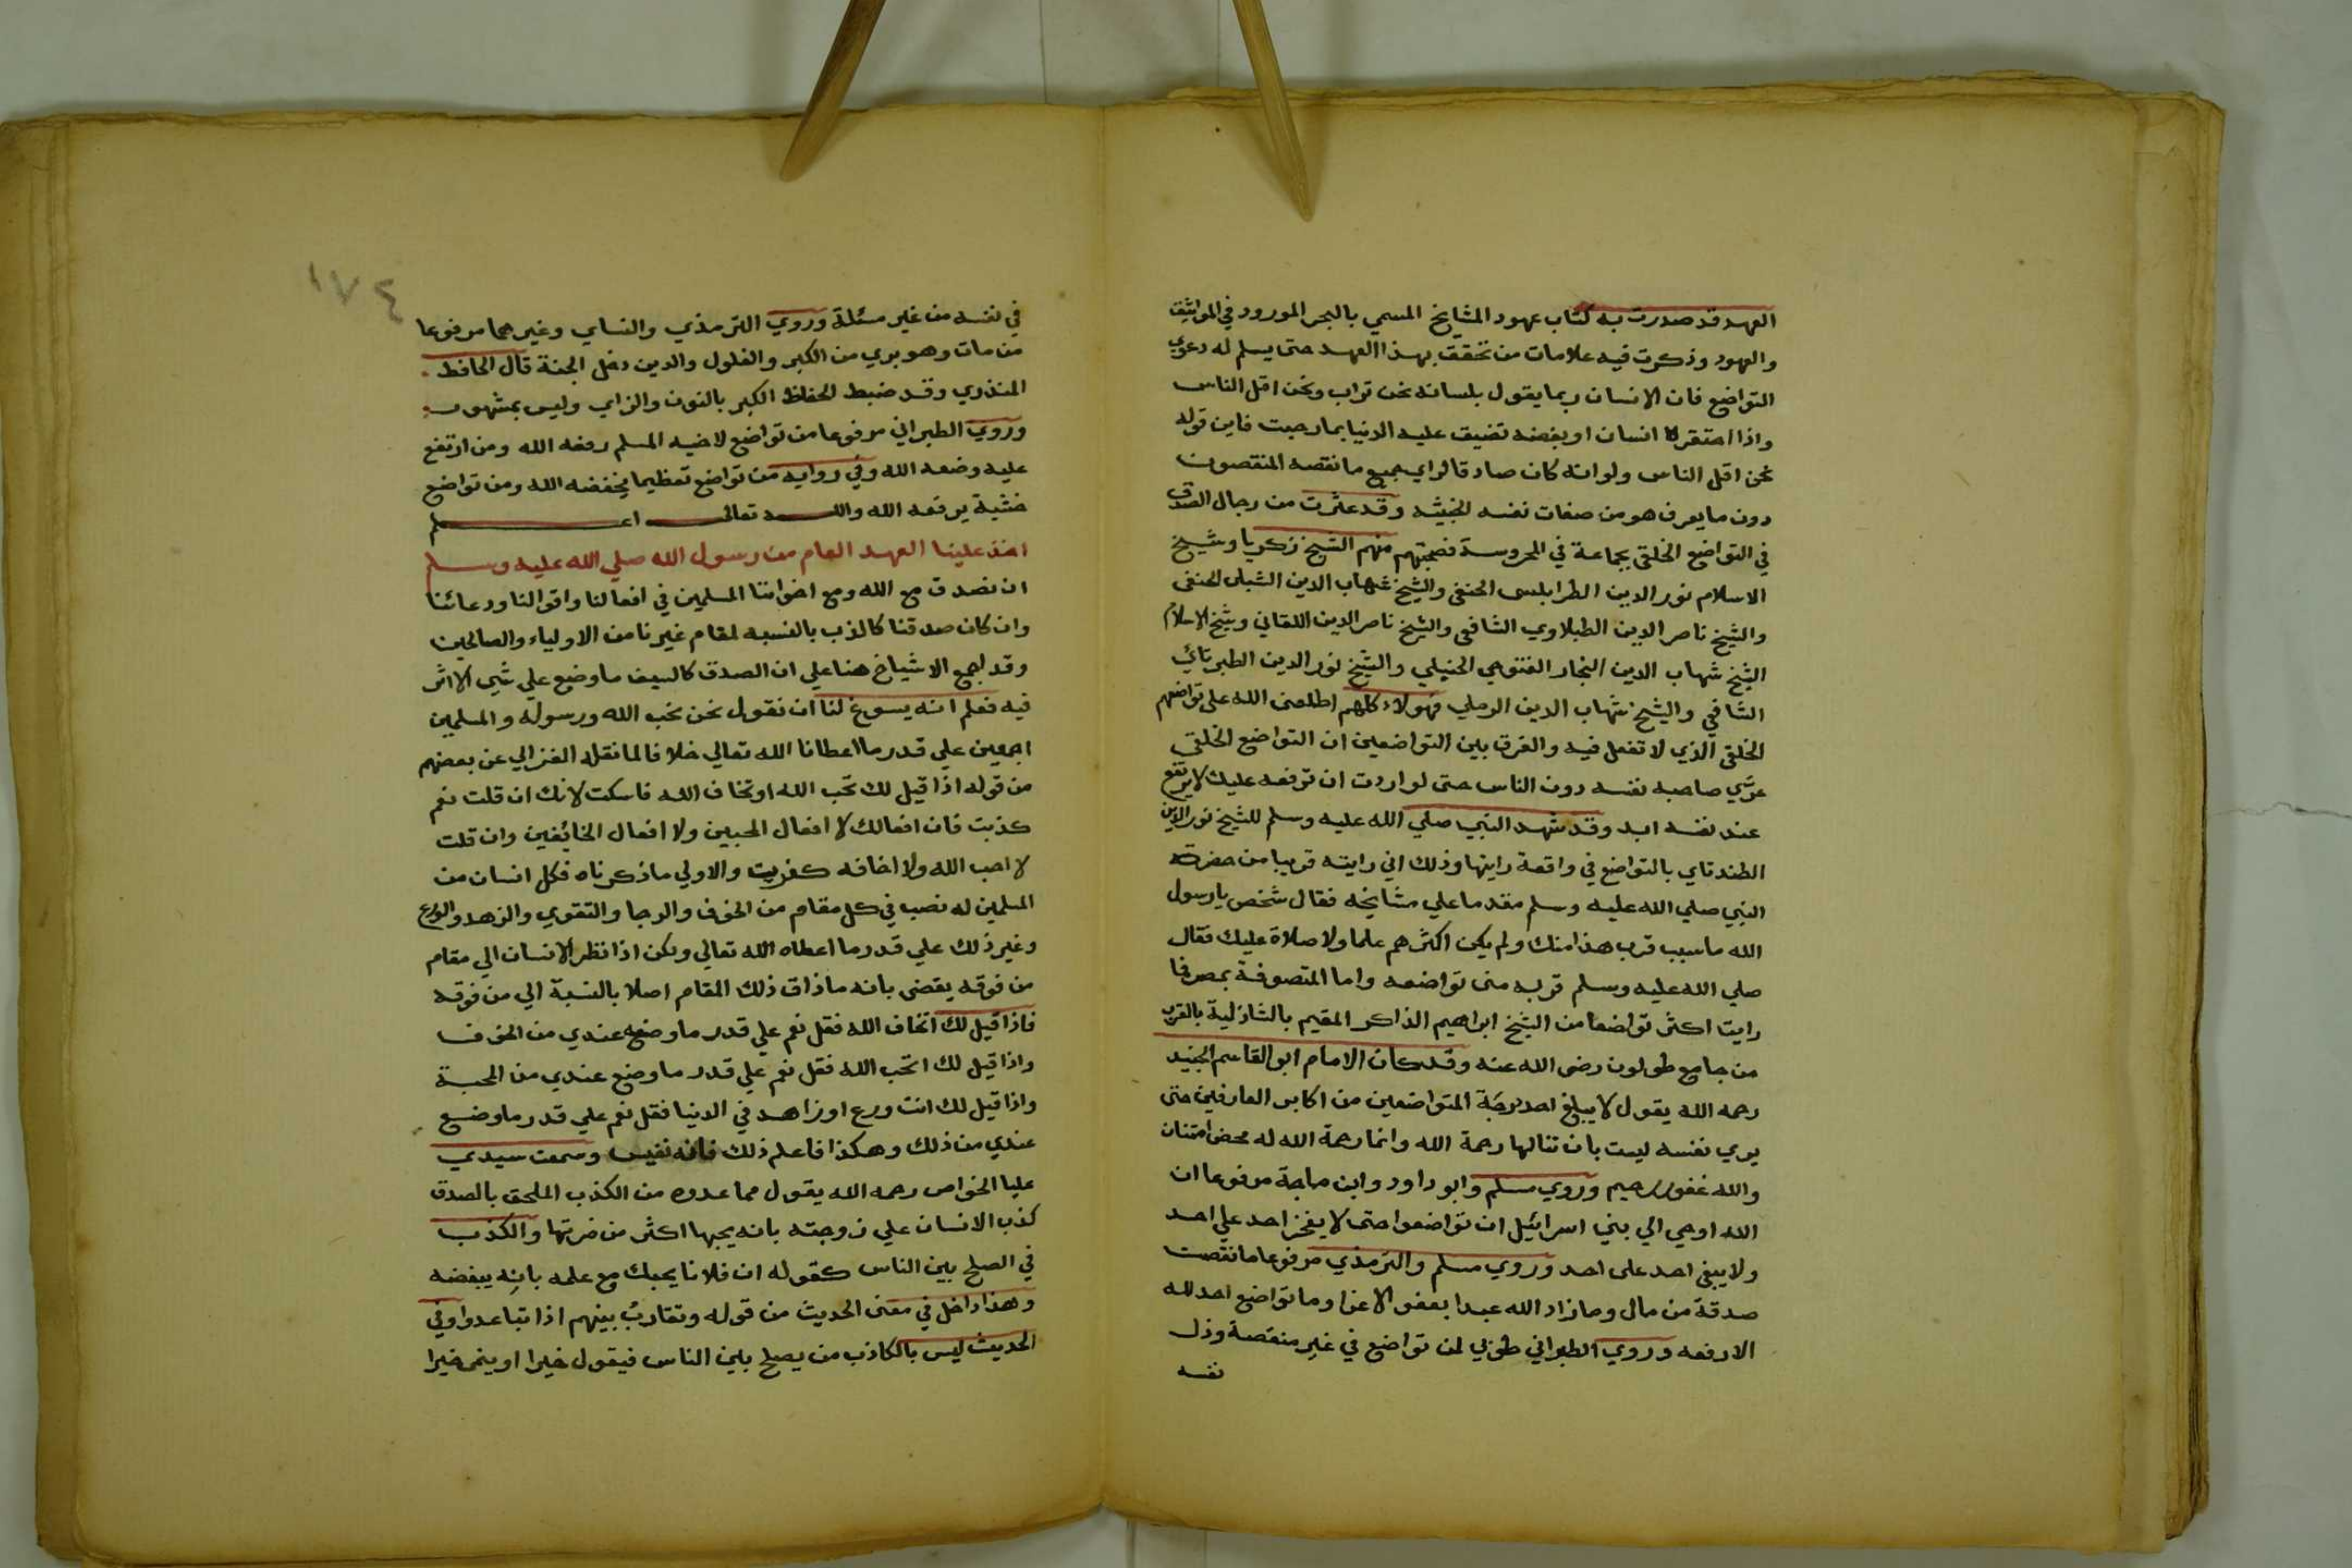 العهد قد صدرت به كتاب عهود المشايخ المسمي بالبحر المورود في المواثيق
والعهود وذكرت فيه علامات من تحقق بهذا العهد حتى يسلم له دعوي
التواضع فان الانسان ربما يقول بلسانه نحن تراب ونحن اقل الناس
واذا احتقره انسان او بغضه تضيق عليه الدنيا بما رحبت فاين قوله
نحن اقل الناس ولو انه كان صادقا لراي جميع ما نقصه المنقصون
دون ما يعرف هو من صفات نفسه الخبيثه وقد عثرت من رجال الصدق
في التواضع الخلقي بجماعة في المحروسة فصحبتهم منهم الشيخ زكريا وشيخ
الاسلام نور الدين الطرابلسى الحنفي والشيخ شهاب الدين الشبلى الحنفي
والشيخ ناصر الدين الطبلاوي الشافعي والشيخ ناصر الدين اللقاني وشيخ الاسلام
الشيخ شهاب الدين النجار الفتوحي الحنبلي والشيخ نور الدين الطبرتائي
الشافعي والشيخ شهاب الدين الرملي فهولاء كلهم اطلعنى الله على تواضعهم
الخلقي الذي لا تفعل فيه والفرق بين التواضعين ان التواضع الخلقى
يري صاحبه نفسه دون الناس حتى لو اردت ان ترفعه عليك لا يرتفع
عند نفسه ابد وقد شهد النبي صلي الله عليه وسلم للشيخ نور الدين
الطندتاي بالتواضع في واقعة رايتها وذلك اني رايته قريبا من حضرته
النبي صلي الله عليه وسلم مقدما علي مشايخه فقال شخص يا رسول
الله ما سبب قرب هذا منك ولم يكن اكثرهم علما ولا صلاة عليك فقال
صلي الله عليه وسلم قربه منى تواضعه واما المتصوفة بمصر فما
رايت اكثر تواضعا من الشيخ ابراهيم الذاكر المقيم بالشاذلية بالقرب
من جامع طولون رضى الله عنه وقد كان الامام ابو القاسم الجنيد
رحمه الله يقول لا يبلغ احد درجة المتواضعين من اكابر العارفين حتى
يري نفسه ليست بان تنالها رحمة الله وانما رحمة الله له محض امتنان
والله غفور رحيم وروي مسلم وابو داود وابن ماجة مرفوعا ان
الله اوحي الي بني اسرائيل ان تواضعوا حتى لا يفخر احد علي احد
ولا يبغي احد على احد وروي مسلم والترمذي مرفوعا ما نقصت
صدقة من مال وما زاد الله عبدا بعفو الا عزا وما تواضع احد لله
الا رفعه وروي الطبراني طوبي لمن تواضع في غير منقصة وذل
نفسه
١٧٤
في نفسه من غير مسئلة وروي الترمذي والنساي وغيرهما مرفوعا
من مات وهو بري من الكبر والغلول والدين دخل الجنة قال الحافظ
المنذري وقد ضبط الحفاظ الكبر بالنون والزاي وليس بمشهور
وروي الطبراني مرفوعا من تواضع لاخيه المسلم رفعه الله ومن ارتفع
عليه وضعه الله وفي رواية من تواضع تعظيما يخفضه الله ومن تواضع
خشية يرفعه الله والله تعالى اعلم
اخذ علينا العهد العام من رسول الله صلي الله عليه وسلم
ان نصدق مع الله ومع اخواننا المسلمين في افعالنا واقوالنا ودعائنا
وان كان صدقنا كالذب بالنسبه لمقام غيرنا من الاولياء والصالحين
وقد اجمع الاشياخ هنا علي ان الصدق كالسيف ما وضع علي شي الا اثر
فيه فعلم انه يسوغ لنا ان نقول نحن نحب الله ورسوله والمسلمين
اجمعين علي قدر ما اعطانا الله تعالي خلافا لما نقله الغزالي عن بعضهم
من قوله اذا قيل لك تحب الله او تخاف الله فاسكت لانك ان قلت نعم
كذبت فان افعالك لا افعال المحبين ولا افعال الخائفين وان قلت
لا احب الله ولا اخافه كفريت والاولي ما ذكرناه فكل انسان من
المسلمين له نصب في كل مقام من الخوف والرجا والتقوي والزهد والورع
وغير ذلك علي قدر ما اعطاه الله تعالي ولكن اذا نظر الانسان الي مقام
من فوقه يقضى بانه ما ذاق ذلك المقام اصلا بالنسبة الي من فوقه
فاذا قيل لك اتخاف الله فقل نعم علي قدر ما وضعه عندي من الخوف
واذا قيل لك اتحب الله فقل نعم علي قدر ما وضع عندي من المحبة
واذا قيل لك انت ورع او زاهد في الدنيا فقل نعم علي قدر ما وضع
عندي من ذلك وهكذا فاعلم ذلك فانه نفيس وسمعت سيدي
عليا الخواص رحمه الله يقول مما عدوه من الكذب الملحق بالصدق
كذب الانسان علي زوجته بانه يحبها اكثر من ضرتها والكذب
في الصلح بين الناس كقوله ان فلانا يحبك مع علمه بانه يبغضه
وهذا داخل في معنى الحديث من قوله وتقارب بينهم اذا تباعدوا وفي
الحديث ليس بالكاذب من يصلح بين الناس فيقول خيرا او ينمى خيرا